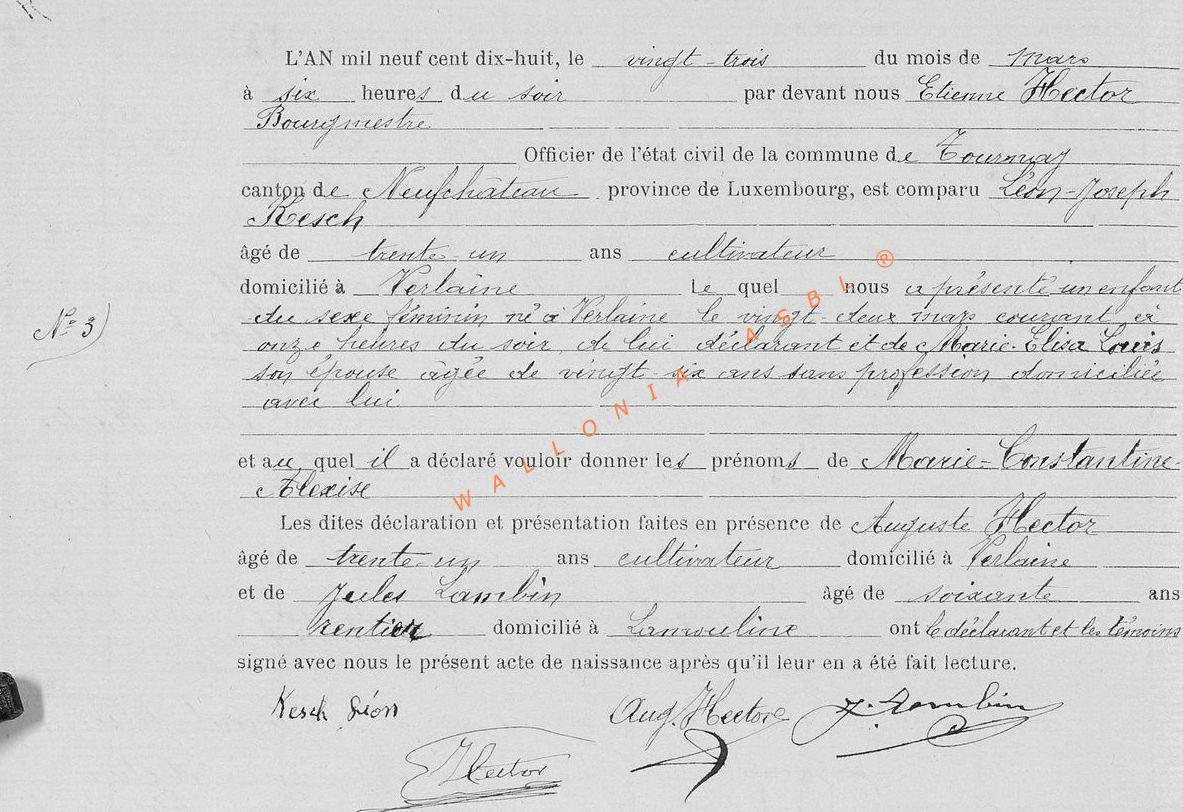 L'AN mil neuf cent dix-huit, le vingt-trois du mois de mars
à six heures du soir par devant nous Etienne Hector
Bourgmestre
Officier de l'état civil de la commune de Tournay
canton de Neufchâteau province de Luxembourg, est comparu Léon-Joseph
Kesch
âgé de trente-un ans cultivateur
domicilié à Verlaine Le quel nous a présenté un enfant
N° 3
du sexe féminin né à Verlaine le vingt-deux mars courant à
onze heures du soir, de lui déclarant et de Marie-Elisa Louis
son épouse âgée de vingt-six ans sans profession domiciliée
avec lui
et au quel il a déclaré vouloir donner les prénoms de Marie-Constantine-
Alexise
Les dites déclaration et présentation faites en présence de Auguste Hector
âgé de trente-un ans cultivateur domicilié à Verlaine
et de Jules Lambin âgé de soixante ans
rentier domicilié à Lamouline ont le déclarant et les témoins
signé avec nous le présent acte de naissance après qu'il leur en a été fait lecture.
Kesch Léon Aug. Hector J. Lambin
Hector
WALLONIA ASBL ®